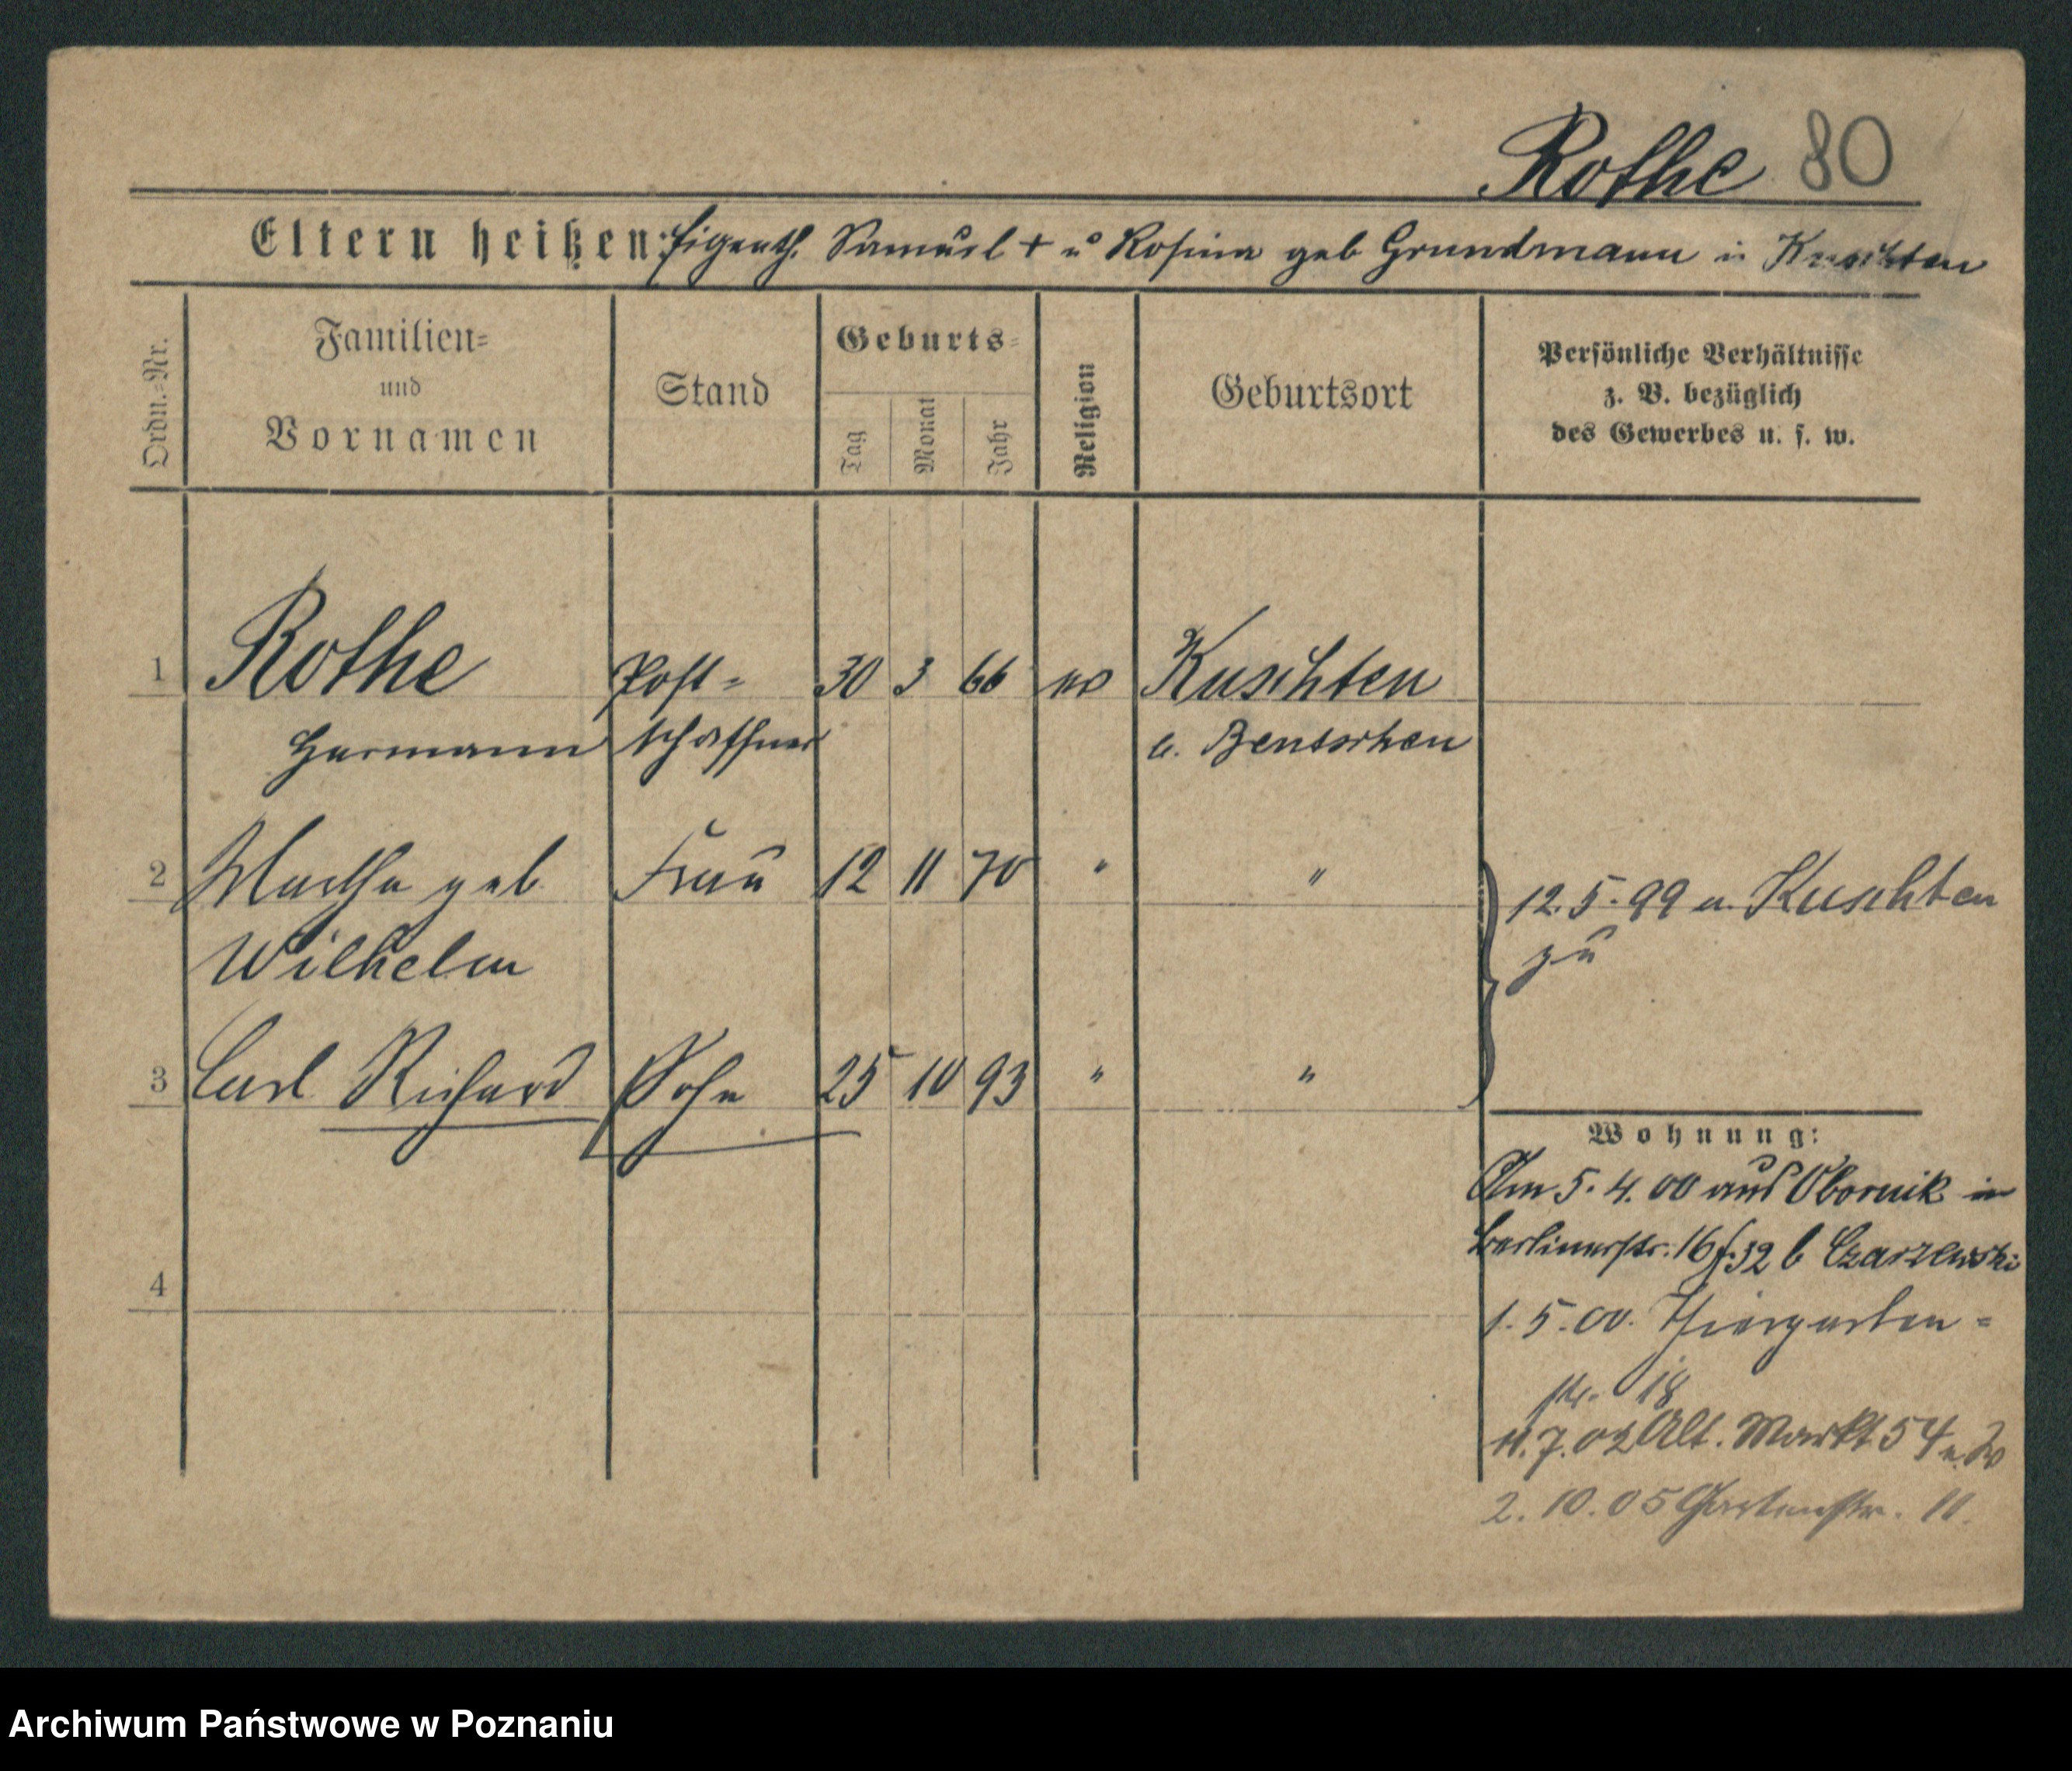 Rothe 80
Eltern heißen: Eigenth. Samuel + u Rosina geb Grundmann in Kuschten
Ordn.=Nr.
Familien=
und
Vornamen
Stand
Geburts=
Tag
Monat
Jahr
Religion
Geburtsort
Persönliche Verhältnisse
z. B. bezüglich
des Gewerbes u. s. w.
1 Rothe Post= 30 3 66 ev Kuschten
Hermann schaffner b. Bentschen
2 Martha geb Frau 12 11 70 " "
Wilhelm
12.5.99 a. Kuschten
zu
3 Carl Richard Sohn 25 10 93 " "
Wohnung:
Am 5.4.00 aus Obornik in
Berlinerstr. 16 f. 32 b Czarzewski
1.5.00. Thiergarten=
str. 18
4
11.7.02 Alt. Markt 54
2.10.05 Gartenstr. 11.
Archiwum Państwowe w Poznaniu